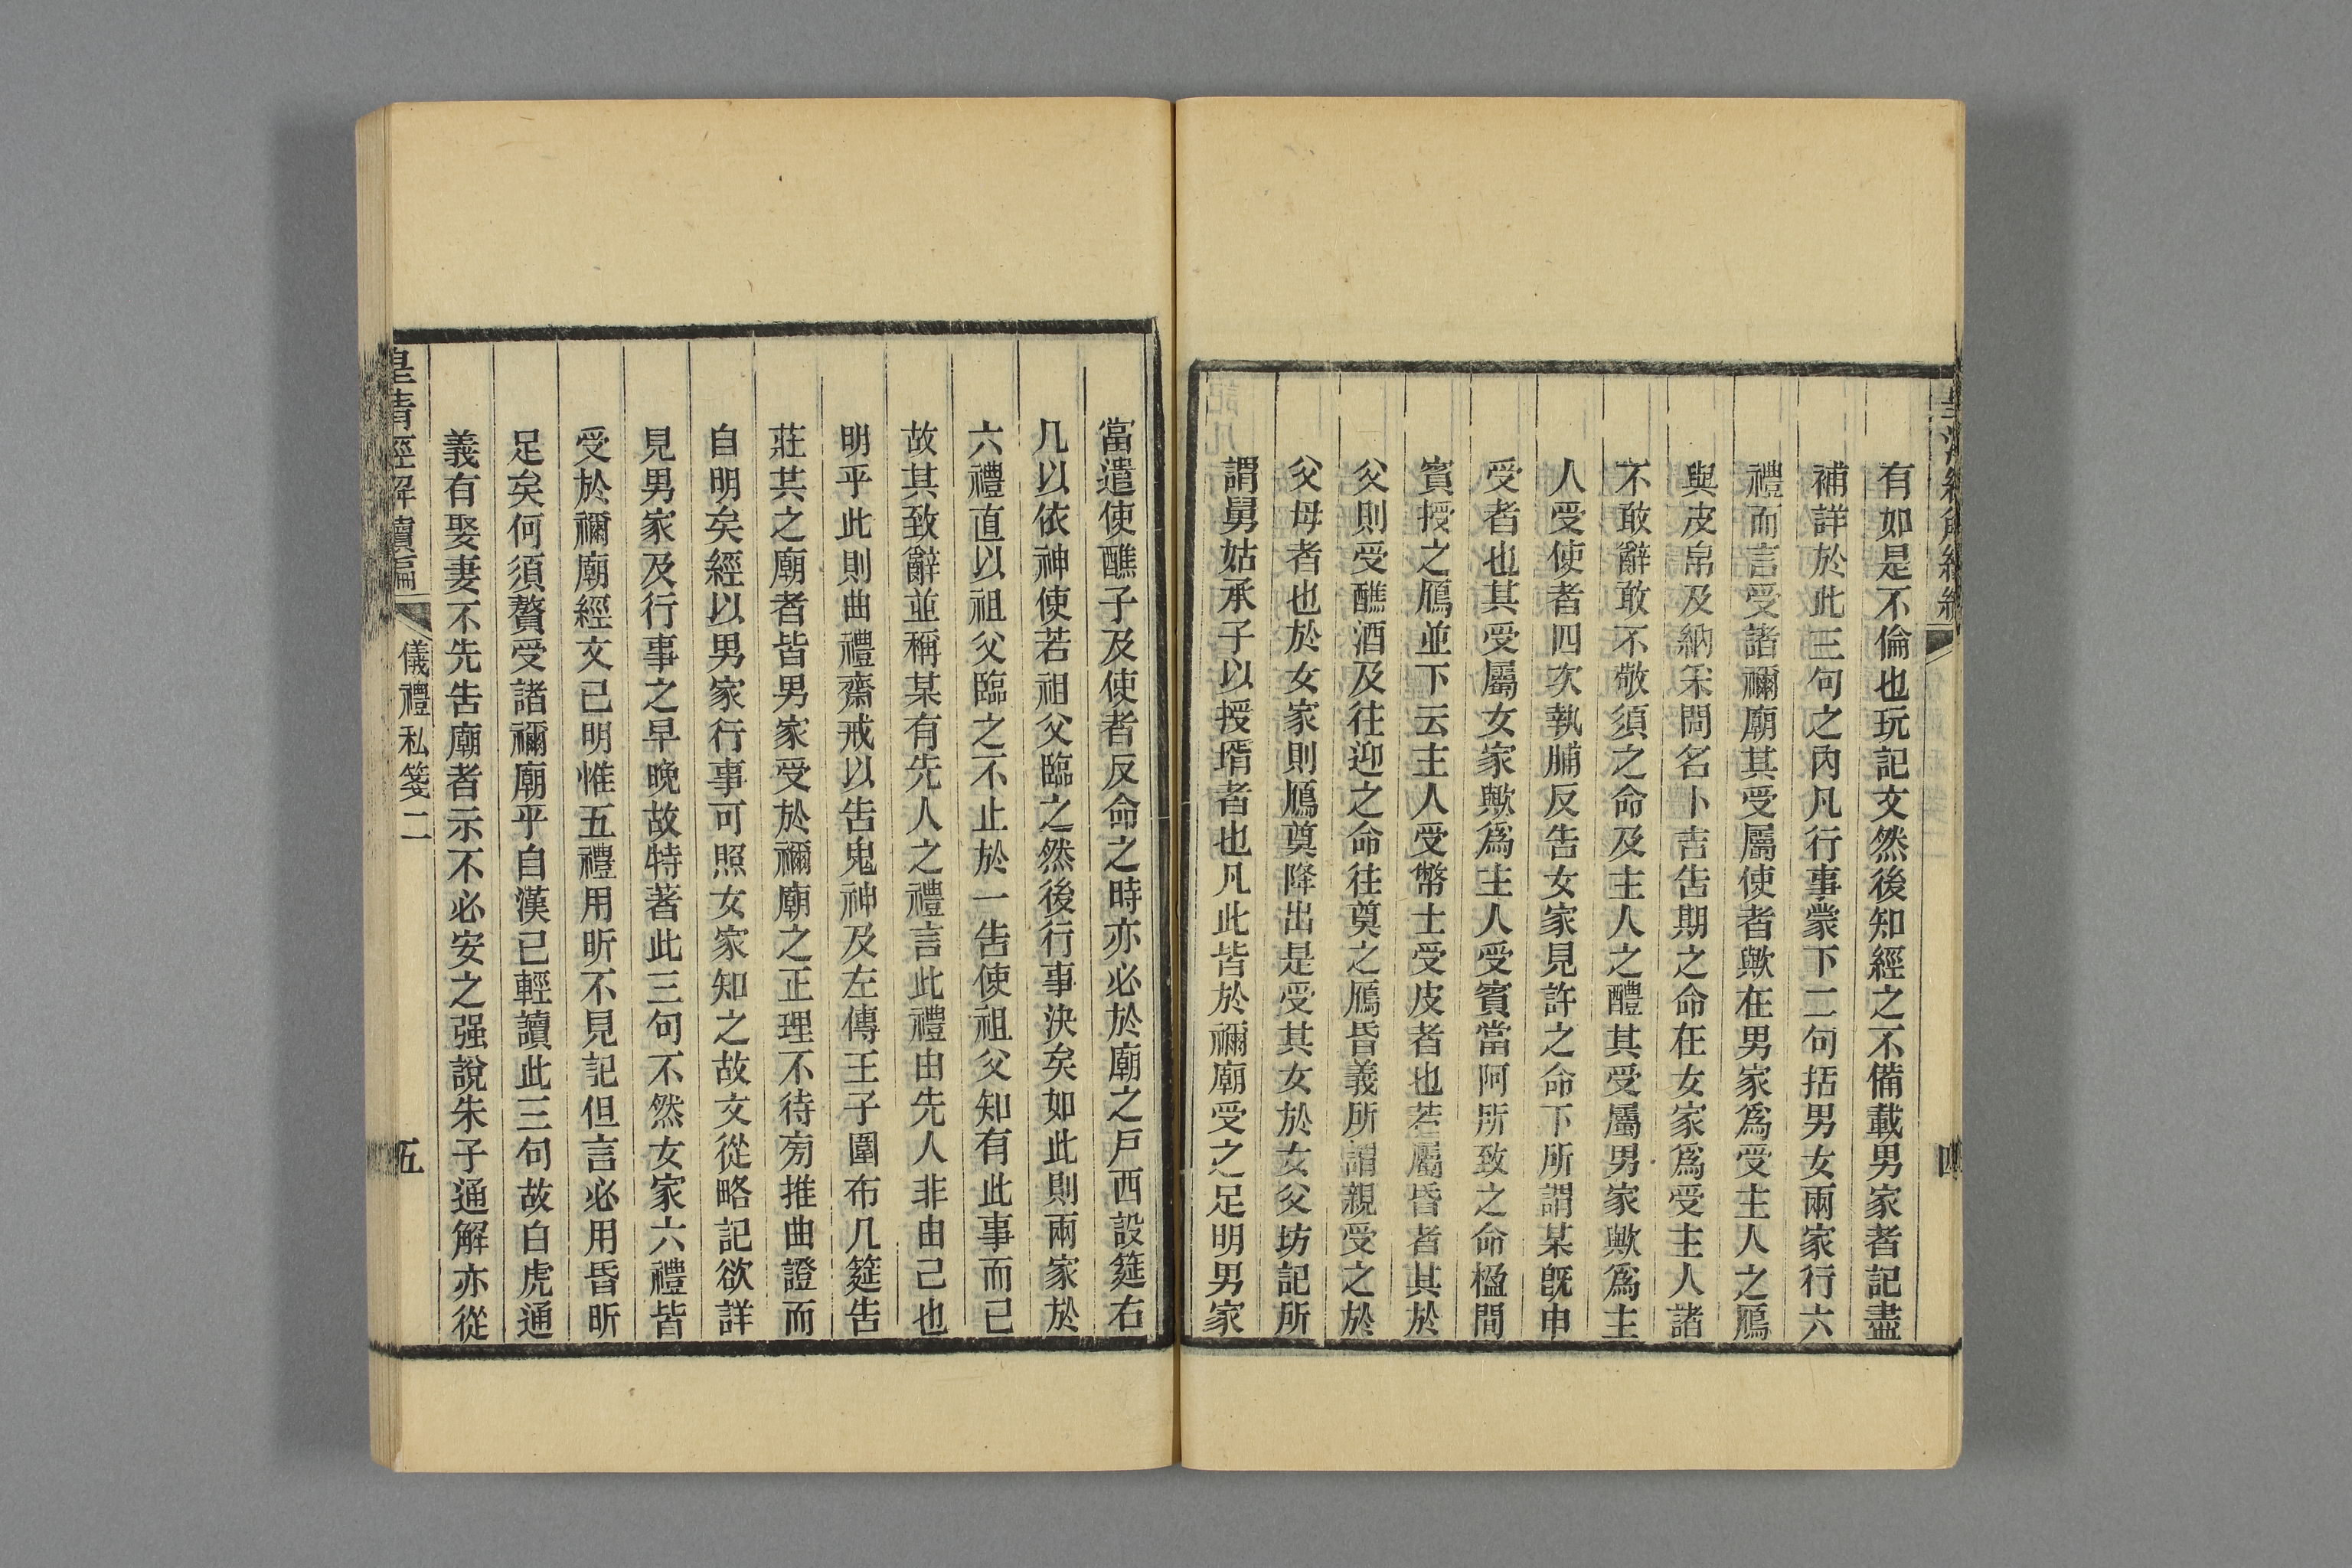 有如是不倫也玩記文然後知經之不備載男家者記盡
補詳於此三句之內凡行事蒙下二句括男女兩家行六
禮而言受諸禰廟其受屬使者歟在男家爲受主人之鴈
與皮帛及納采問名卜吉告期之命在女家爲受主人諸
不敢辭敢不敬須之命及主人之醴其受屬男家歟爲主
人受使者四次執脯反告女家見許之命下所謂某旣申
受者也其受屬女家歟爲主人受賓當阿所致之命楹間
賓授之鴈並下云主人受幣士受皮者也若屬昏者其於
父則受醮酒及往迎之命往奠之鴈昏義所謂親受之於
父母者也於女家則鴈奠降出是受其女於女父坊記所
謂舅姑承子以授壻者也凡此皆於禰廟受之足明男家
四
當遣使醮子及使者反命之時亦必於廟之戶西設筵右
几以依神使若祖父臨之然後行事決矣如此則兩家於
六禮直以祖父臨之不止於一告使祖父知有此事而已
故其致辭並稱某有先人之禮言此禮由先人非由己也
明乎此則曲禮齋戒以告鬼神及左傳王子圍布几筵告
莊共之廟者皆男家受於禰廟之正理不待旁推曲證而
自明矣經以男家行事可照女家知之故文從略記欲詳
見男家及行事之早晚故特著此三句不然女家六禮皆
受於禰廟經文已明惟五禮用昕不見記但言必用昏昕
足矣何須贅受諸禰廟乎自漢已輕讀此三句故白虎通
義有娶妻不先告廟者示不必安之强說朱子通解亦從
皇清經解續編
儀禮私箋二
五